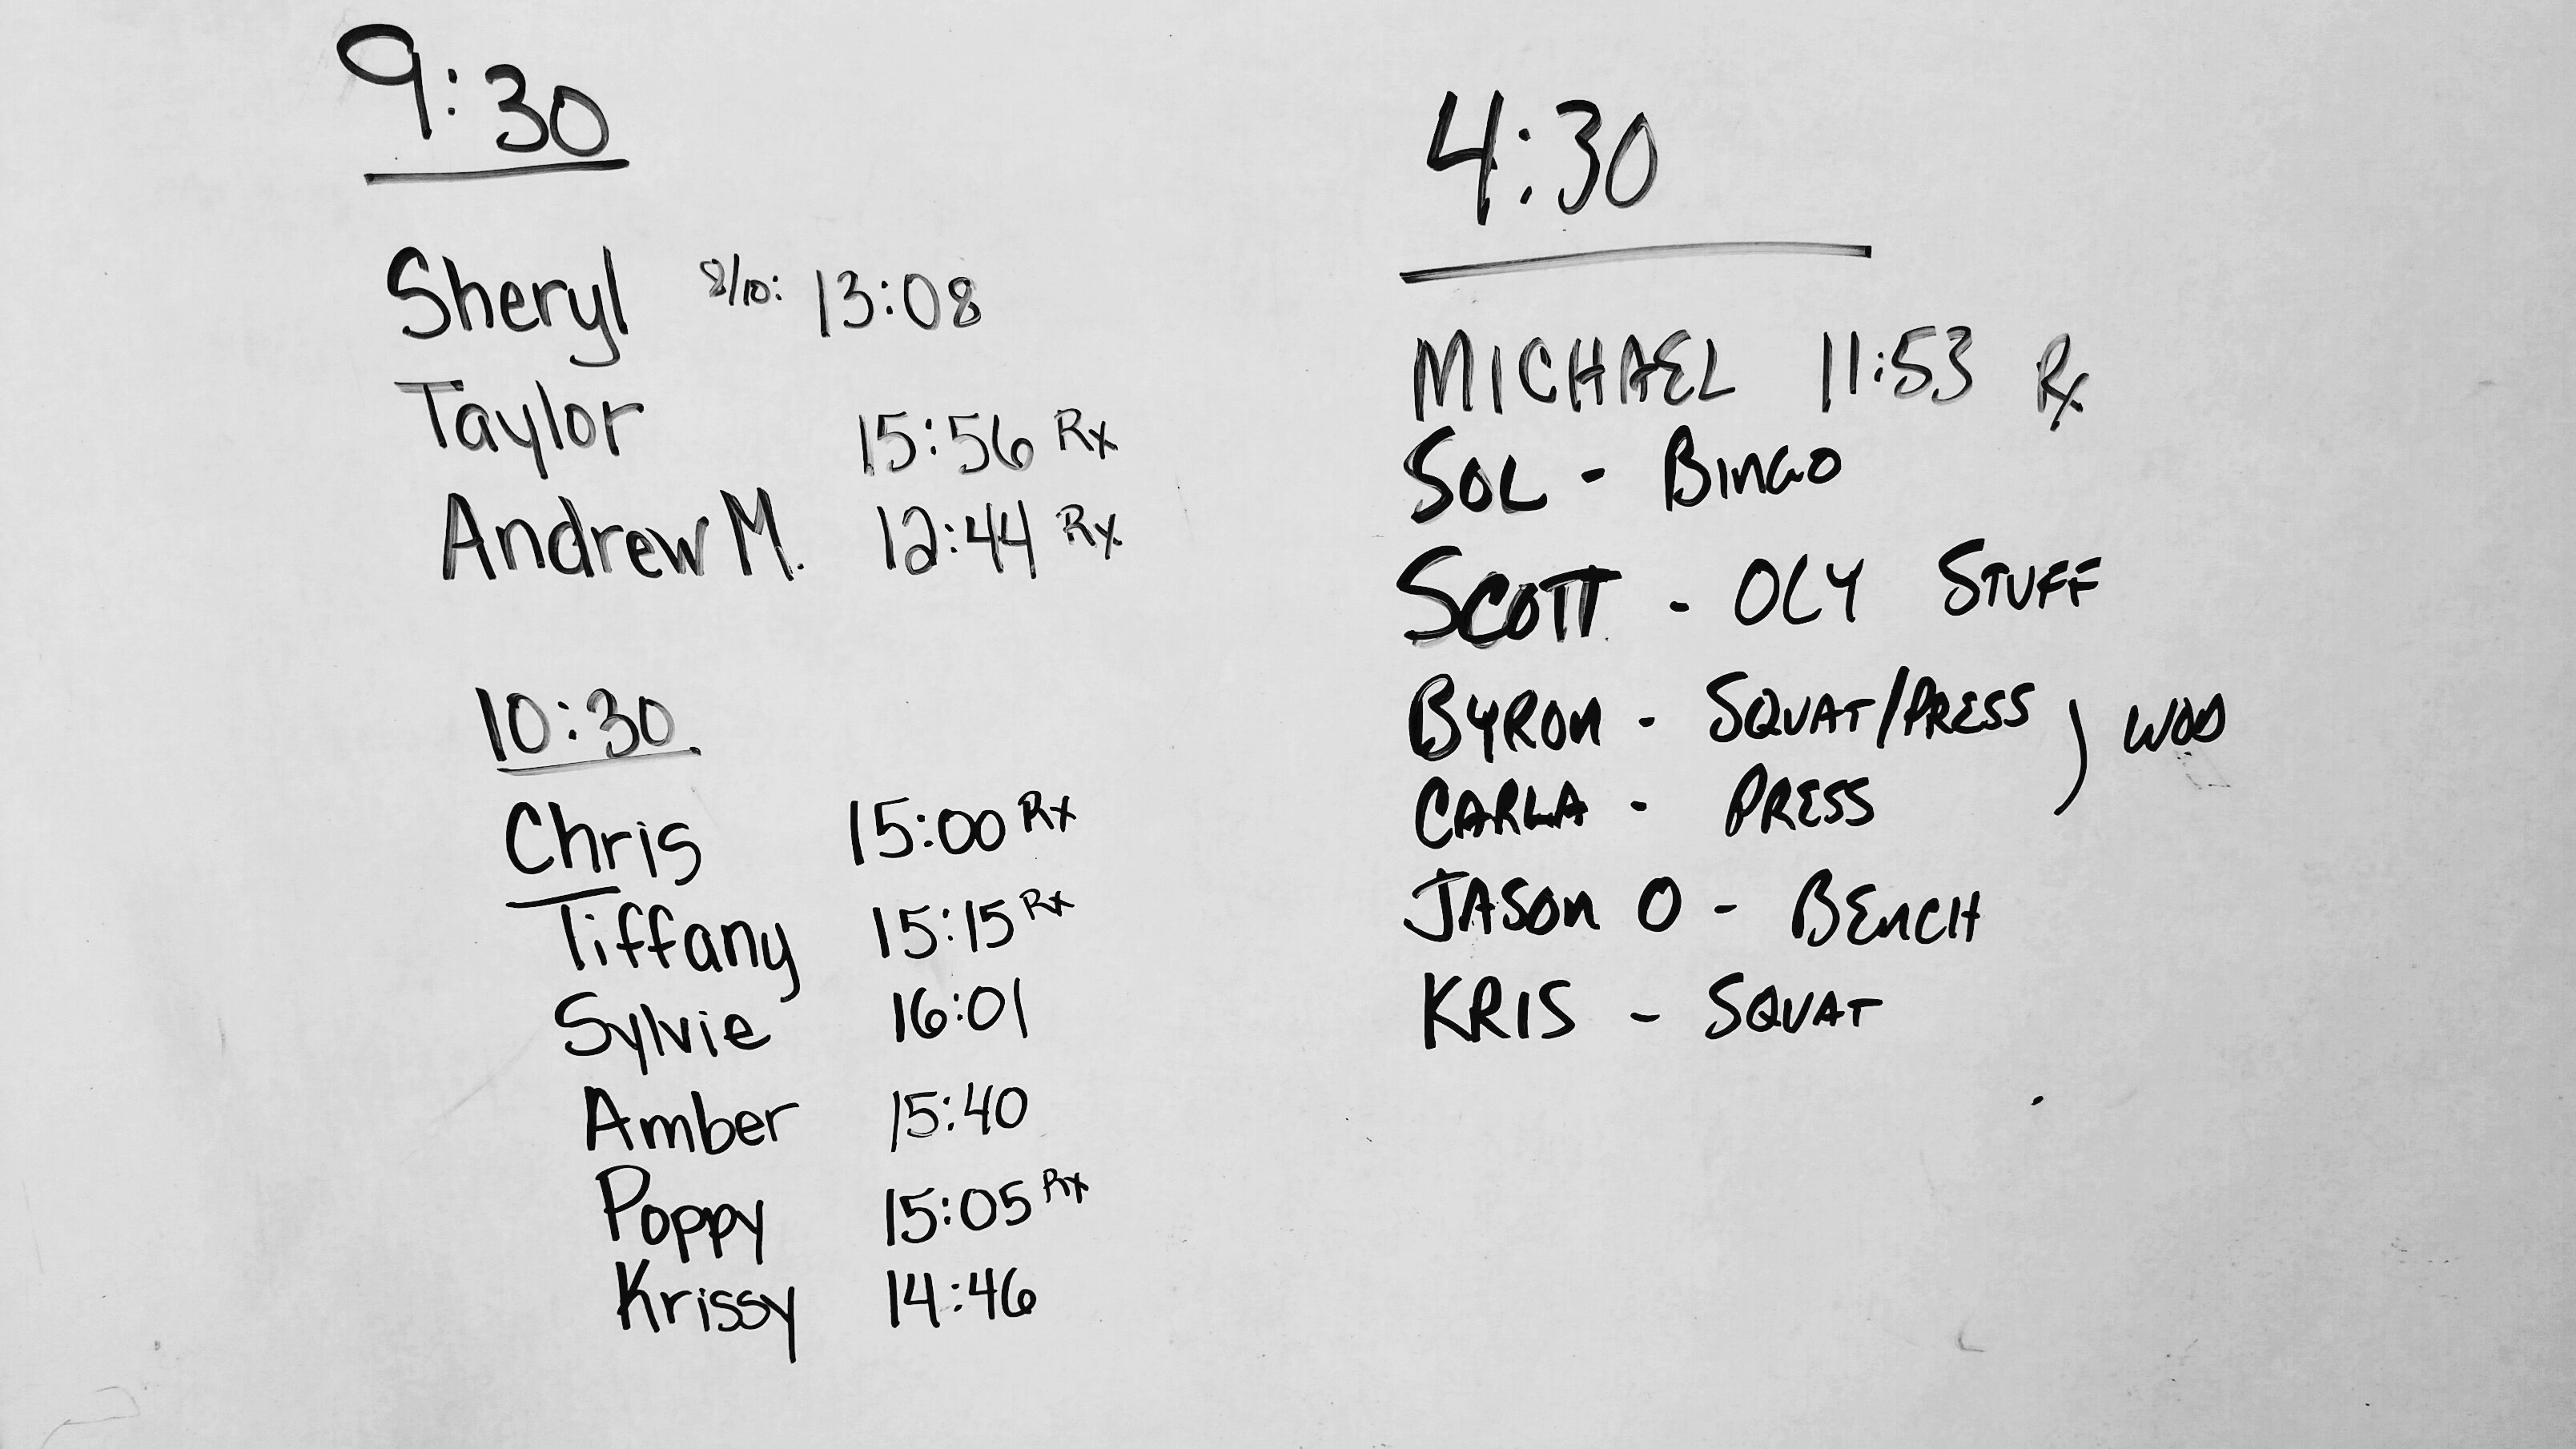 9:30
Sheryl 8/10: 13:08
Taylor 15:56 Rx
Andrew M. 12:44 Rx
10:30
Chris 15:00 Rx
Tiffany 15:15 Rx
Sylvie 16:01
Amber 15:40
Poppy 15:05 Rx
Krissy 14:46
4:30
MICHAEL 11:53 Rx
SOL - BINGO
SCOTT - OLY STUFF
BYRON - SQUAT/PRESS ) WOD
CARLA - PRESS
JASON O - BENCH
KRIS - SQUAT